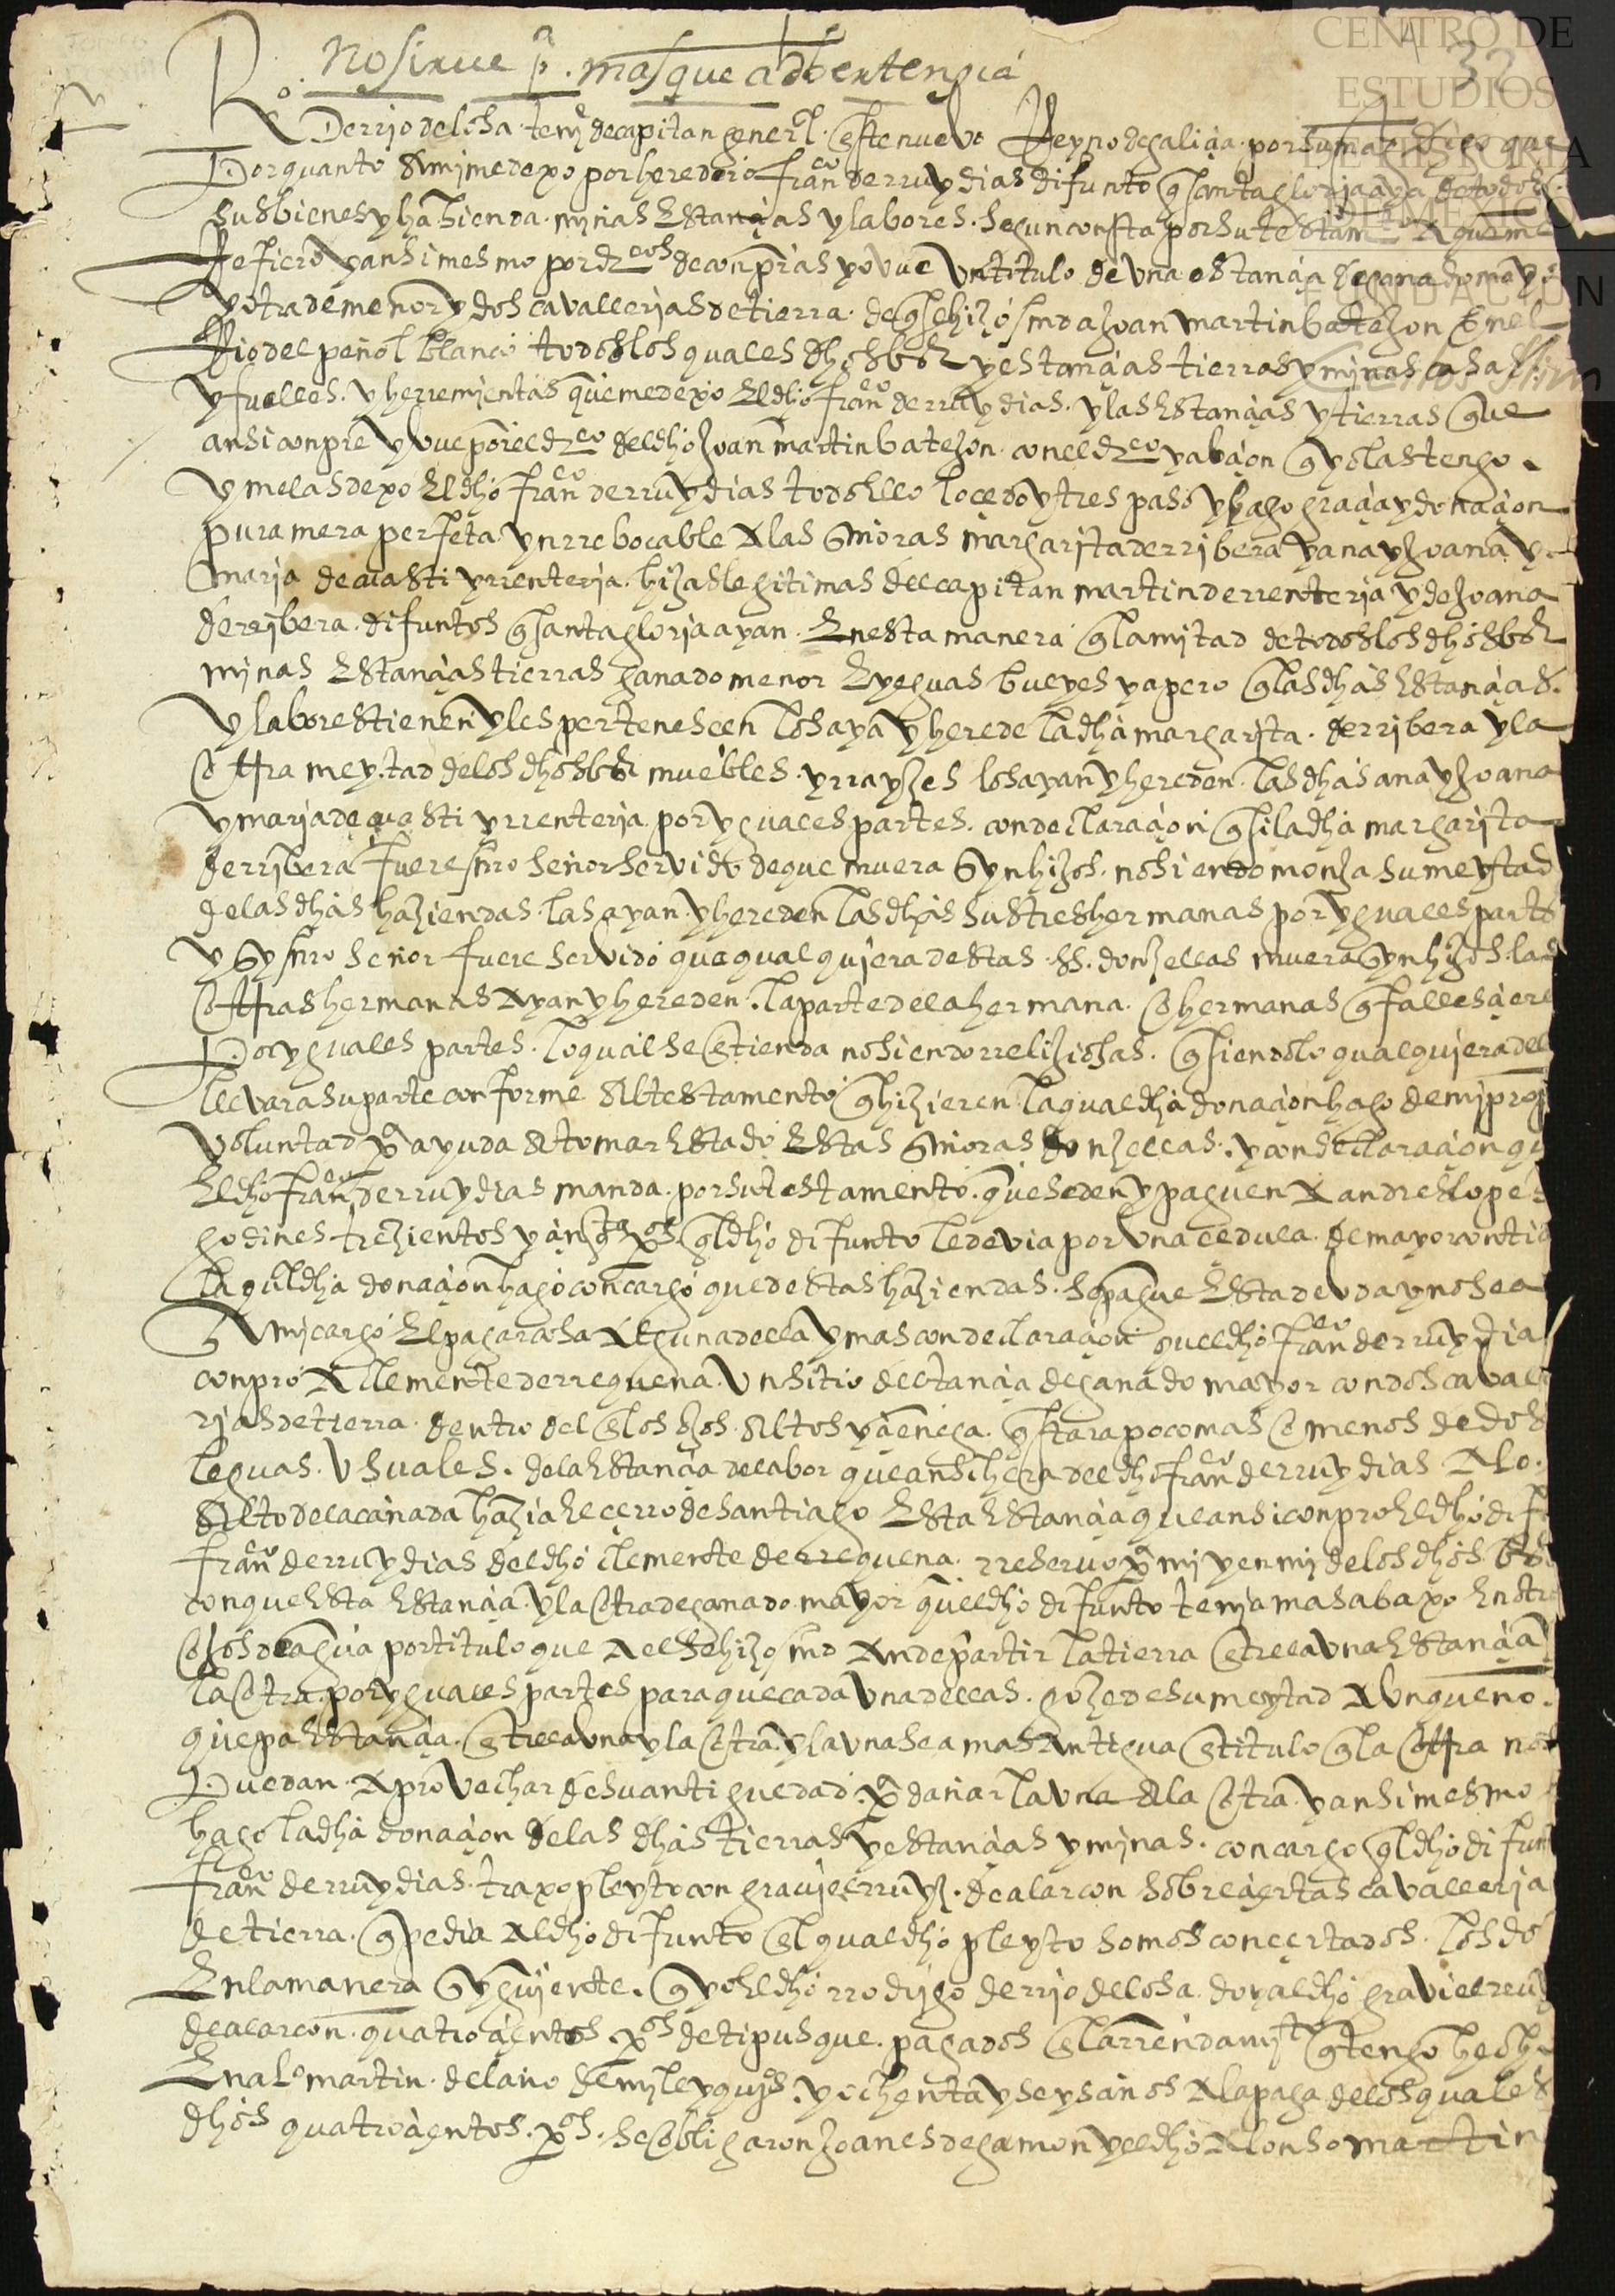 No sirue pa. mas que adbertençia
Ro. Derrio de losa. tenie de capitan generl. este nuebo Reyno de galiçia. por su magd digo que
Por quanto A mj me dexo por heredero franco derruy dias difunto q santa gloria aya de todos
sus bienes y hazienda. mjnas Estançias y labores. segun consta por su testamto A que me
Refiero y ansimesmo por drcos de conpras yo uve Vn titulo de vna estançia de ganado mayor
y otra de menor y dos cavallerjas de tierra. de q se hizo md a Joan martin bateJon En el
Rio del peñol blanco todos los quales dhos bss y estançias tierras y minas casas
y fuelles. y herremjentas que me dexo El dho franco derruy dias. y las Estançias y tierras que
ansi conpre y uve por el drco del dho Joan martin bateJon. con el drco y abçion q yo las tengo.
y me las dexo El dho franco derruy dias todo Ello lo cedo y trespaso y hago graçia y donaçion
pura mera perfeta ynrrebocable A las Smoras margarjta derribera y ana y Joana y
marja de uasti yrrenterja. hijas legitimas del capitan martin derrenterja y de Joana
derribera. difuntos q santa gloria ayan. En esta manera q la mjtad de todos los dhos bss
mjnas Estançias tierras ganado menor E yeguas bueyes y apero q las dhas Estançias.
y labores tienen y les pertenescen los aya y herede la dha margarjta. derribera y la
otra meytad de los dhos bss muebles. y rrayzes los ayan y hereden. las dhas ana y Joana
y marja de uasti yrrenterja. por yguales partes. con declaraçion q si la dha margarjta
derribera fuere nro señor servido de que muera syn hijos. no siendo monJa su meytad
de las dhas haziendas. las ayan. y hereden las dhas sus tres hermanas por yguales parts
y sy nro señor fuere servido que qualqujera destas ss. donzellas muera syn hijos. las
otras hermanas Ayan y hereden. la parte de la hermana. o hermanas q fallesçiere
Por yguales partes. lo qual se Entienda no siendo rrelijiosas. q siendolo qualqujera del
llevara su parte conforme Al testamento q hizieren. la qual dha donaçion hago de mj prop
voluntad pa ayuda A tomar Estado Estas Smoras donzellas. y con declaraçion qu
El dho franco derruy dias manda. por su testamento. que se den y paguen A andres lopes
godines trezientos y çinqta pos q el dho difunto le devia por vna çedula. de mayor contia
la qual dha donaçion hago con cargo que destas haziendas. se pague Esta devda y no sea
A mj cargo El pagar cosa Alguna della y mas con declaraçion que el dho franco derruy dias
conpro A clemente derrequena. Vn sitio de Estançia de ganado mayor con dos cavalle
rjas de tierra. dentro de los oJos. Altos y çienega. q Estara poco mas o menos de dos
leguas. Vsuales. de la Estançia de labor que ansi hera del dho franco derruy dias A lo.
Alto de la cañada hazia El çerro de santiago Esta Estançia que ansi conpro El dho dif
franco derruy dias del dho clemente derrequena. rreservo pa mj y en mj de los dhos bss
con que Esta Estançia. y la otra de ganado mayor que el dho difunto tenja mas abaxo En otr
oJos de agua por titulo que A el se hizo md An de partir la tierra Entre la vna Estançia y
la otra. por yguales partes para que cada vna dellas. goze de su meytad Avnque no.
quepa Estançia. Entre la vna y la otra. y la vna sea mas Antigua En titulo q la otra no
Puedan. Aprovechar de su antiguedad. pa dañar la vna A la otra. y ansimesmo
hago la dha donaçion de las dhas tierras y estançias y mjnas. con cargo q el dho difunt
franco derruy dias. traxo pleyto con gravjel rruyz. de alarcon sobre çiertas cavallerja
de tierra. q pedia Al dho difunto El qual dho pleyto somos conçertados. los dos
En la manera sygujente. q yo El dho rrodrjgo derrjo de losa. do y al dho graviel rruy
de alarcon. quatroçientos. pos de tipusque. pagados En El arrendamjto q tengo hecho
En alo martin. del año de myll y qujs. y ochenta y seys años A la paga de los quales
dhos quatroçientos. pos. se obligaron Joanes de gamon y el dho Alonso martin